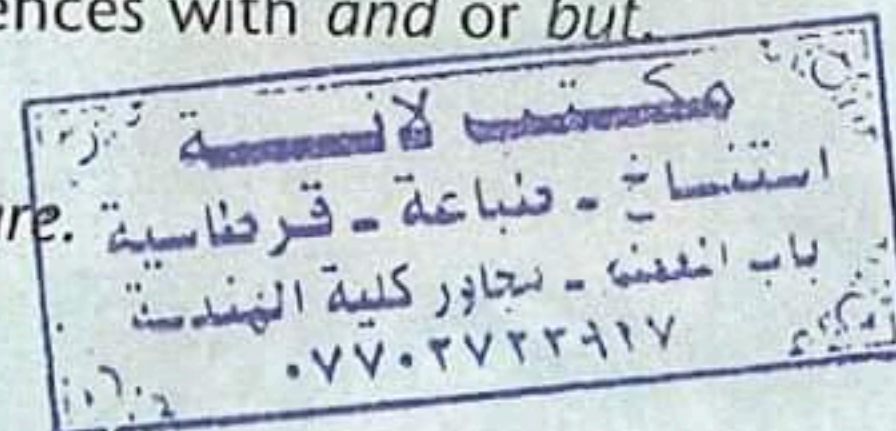 ences with and or but.
مكتب لانة
استنساخ - طباعة - قرطاسية
re.
باب المعظم - مجاور كلية الهندسة